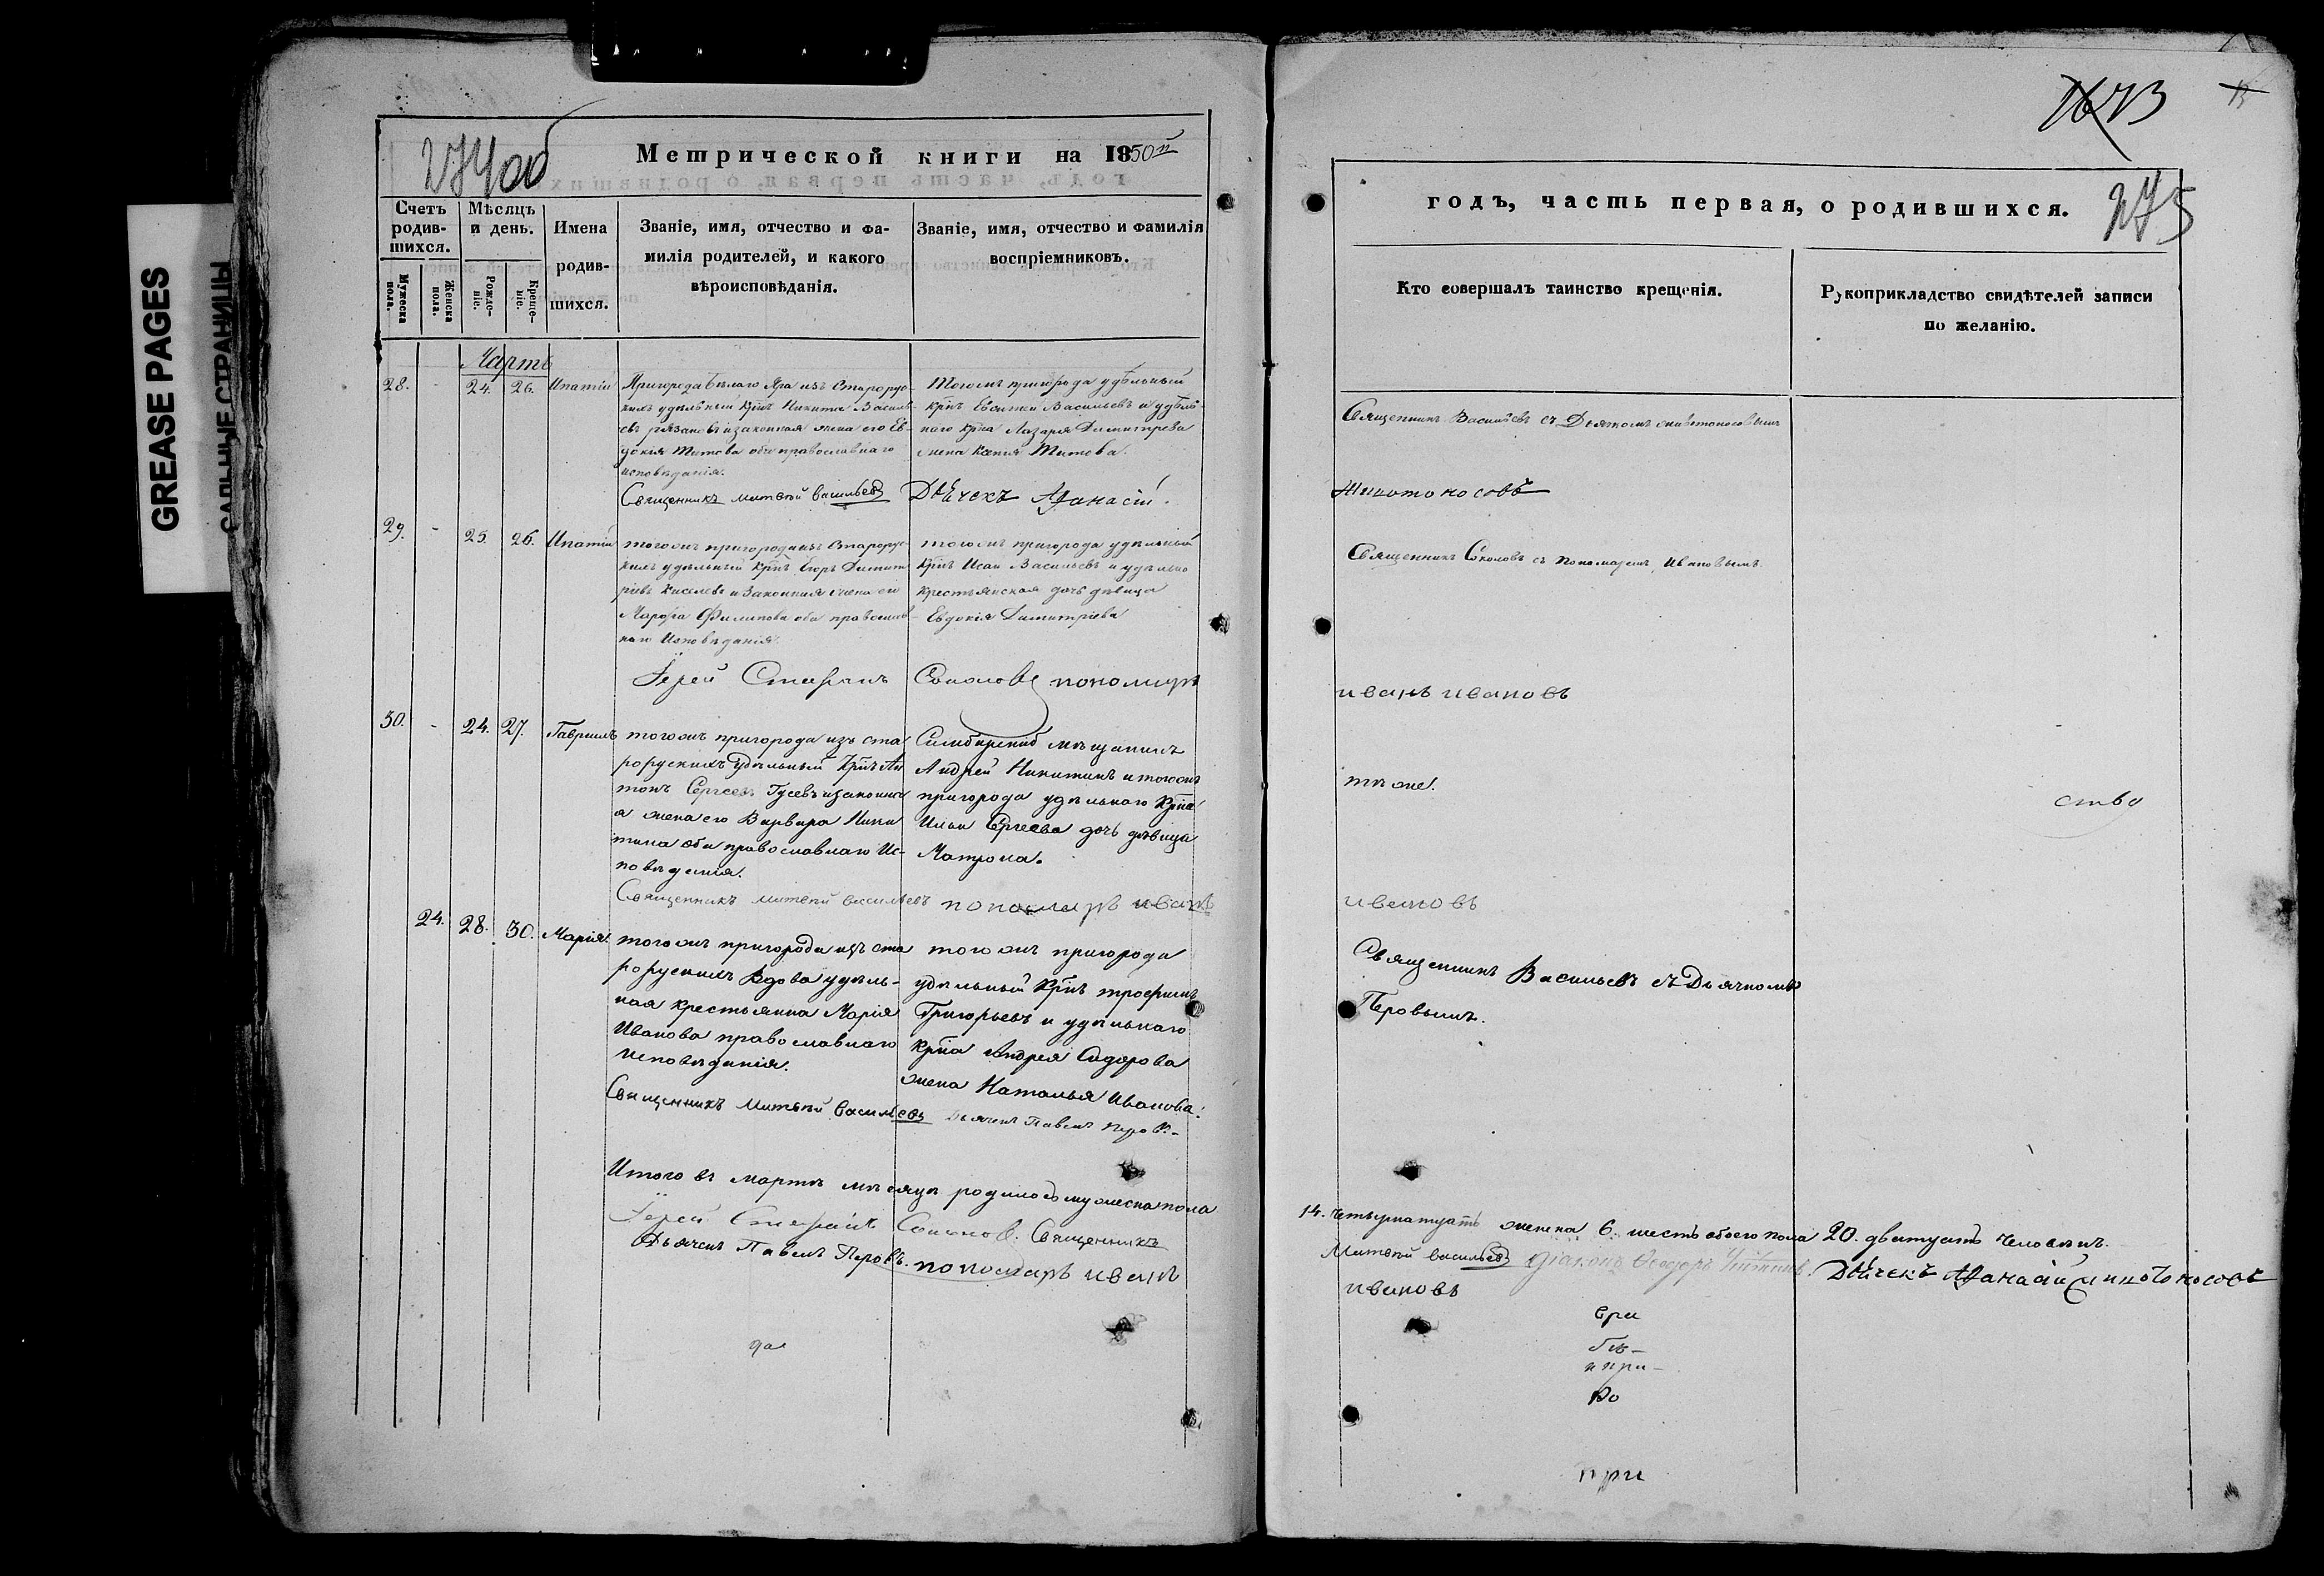 GREASE PAGES
САЛЬНЫЕ СТРАНИЦЫ
274об
Метрической книги на 1850й
Счетъ родив-
шихся.
Мужеска пола.
Женска пола.
Мѣсяцъ и день.
Рожде-
ніе.
Креще-
ніе.
Имена
родив-
шихся.
Званіе, имя, отчество и фа-
милія родителей, и какого
вѣроисповѣданія.
Званіе, имя, отчество и фамилія
воспріемниковъ.
Мартъ
28. - 24. 26. Ипатій
Пригорода Бѣлаго Яра изъ Старорус-
кихъ удѣльный крн҃ъ Никита Василь-
евъ Рязановъ изаконная жена его Ев-
докія Титова оба православнаго
исповѣданія.
Тогожъ пригорода удѣльный
крн҃ъ Евсигней Васильевъ и удѣль-
наго крн҃а Лазаря Димитрева
жена Ксенія Титова.
Священникъ Матвѣй Васильевъ Дьячекъ Афанасій
29. - 25. 26. Ипатій
тогожъ пригорода изъ Старорус-
кихъ удѣльный крн҃ъ Егоръ Димит-
ріевъ Киселевъ и Законная жена его
Марфа Филипова оба православ-
наго Исповѣданія
тогожъ пригорода удѣльный
крн҃ъ Исай Васильевъ и удѣльно
крестьянская дочь дѣвица
Евдокія Димитріева
Іерей Стефанъ Соколовъ пономарь
30. - 24. 27. Гавриилъ
тогожъ пригорода изъ Ста
рорускихъ удѣльный крн҃ъ Ан
тонъ Сергеевъ Гусевъ изаконна
я жена его Варвара Ники
тина оба православнаго Ис-
повѣденія.
Симбирский мѣщанинъ
Андрей Никитинъ и тогожъ
пригорода удѣльнаго крн҃а
Ильи Сергеева дочь дѣвица
Матрона.
Священникъ Матвѣй Васильевъ пономарь иванъ
24. 28. 30. Марія.
тогожъ пригорода изъ ста
рорускихъ Вдова удѣль-
ная крестьянка Марія
Иванова православнаго
Исповѣданія.
тогожъ пригорода
удѣльный крн҃ъ трофимъ
Григорьевъ и удѣльнаго
крн҃а Андрея Сидорова
жена Наталья Иванова.
Священникъ Матвѣй Васильевъ Дьячекъ Павелъ Перовъ
Итого въ Мартѣ мѣсяцѣ родилось мужеска пола
Іерей Стефанъ Соколовъ. Священникъ
Дьячекъ Павелъ Перовъ. пономарь иванъ
да
73
275
годъ, часть первая, о родившихся.
Кто совершалъ таинство крещенія.
Рукоприкладство свидѣтелей записи
по желанію.
Священникъ Васильевъ съ Дьячкомъ Живото­носовымъ
Животоносовъ
Священникъ Соколовъ съ Пономаремъ Ивановымъ.
иванъ ивановъ
тѣже.
ство
ивановъ
Священникъ Васильевъ съ Дьячкомъ
Перовымъ.
14. Четырнатцать женска 6. шесть обоего пола 20. дватцать человѣкъ.
Матвѣй Васильевъ Діаконъ Феодоръ Дьячекъ Афанасій Животоносовъ
ивановъ
при